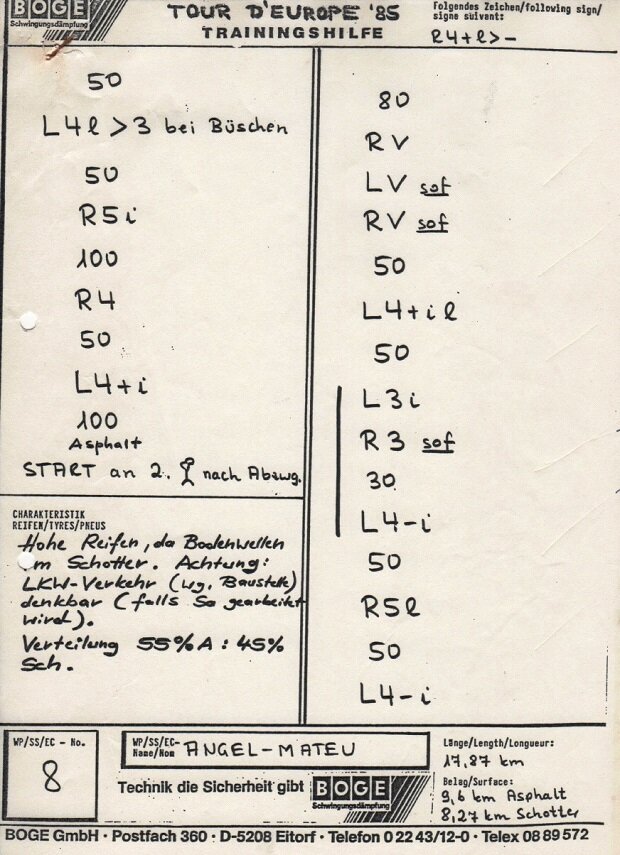 BOGE
Schwingungsdämpfung
TOUR D'EUROPE '85
TRAININGSHILFE
Folgendes Zeichen/following sign/
signe suivant:
R4+l>-
50
L4l>3 bei Büschen
50
R5i
100
R4
50
L4+i
100
Asphalt
START an 2. nach Abzwg.
CHARAKTERISTIK
REIFEN/TYRES/PNEUS
Hohe Reifen, da Bodenwellen
im Schotter. Achtung:
LKW-Verkehr (wg. Baustelle)
denkbar (falls So gearbeitet
wird).
Verteilung 55% A : 45%
Sch.
80
RV
LV sof
RV sof
50
L4+il
50
L3i
R3 sof
30
L4-i
50
R5l
50
L4-i
WP/SS/EC - No.
8
WP/SS/EC-
Name/Nom
ANGEL-MATEU
Technik die Sicherheit gibt
BOGE
Schwingungsdämpfung
Länge/Length/Longueur:
17,87 km
Belag/Surface:
9,6 km Asphalt
8,27 km Schotter
BOGE GmbH · Postfach 360 · D-5208 Eitorf · Telefon 0 22 43/12-0 · Telex 08 89 572